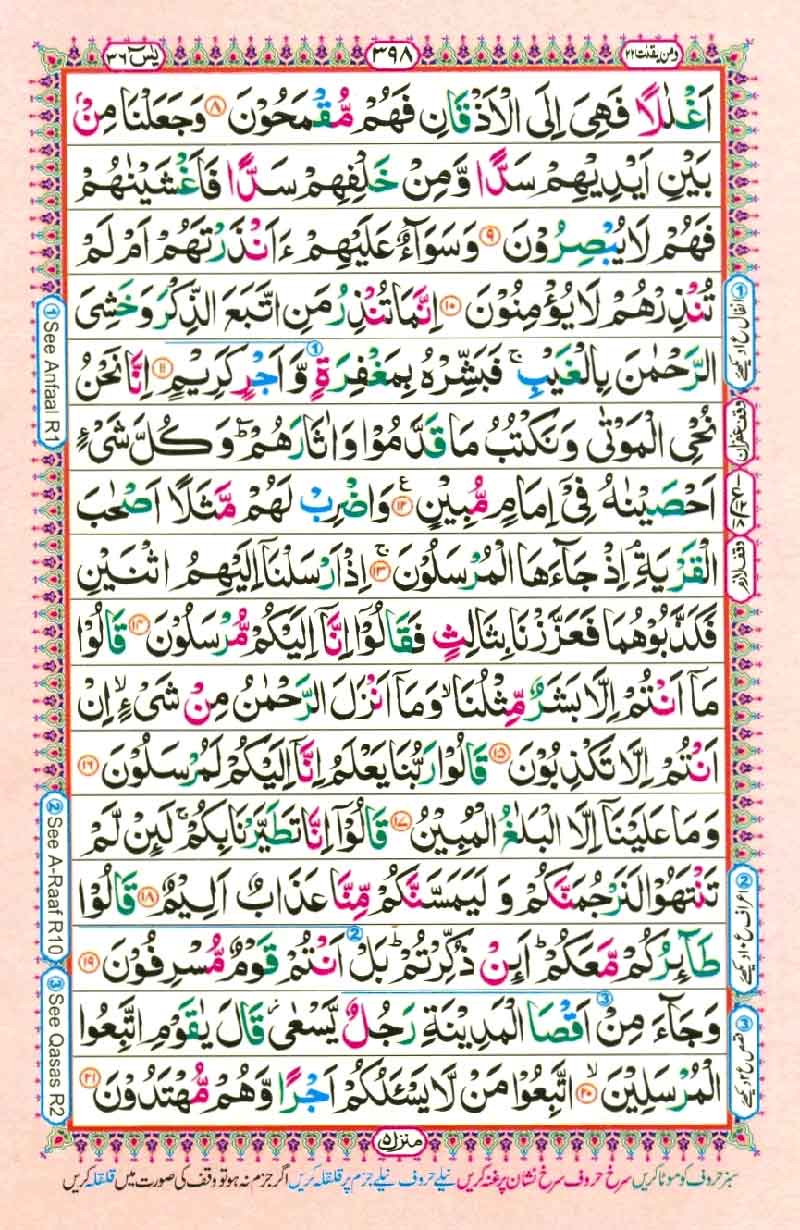 ومن يقنت ۲۲
۳۹۸
يٰسٓ ۳۶
اَغْلٰلًا فَهِىَ اِلَى الْاَذْقَانِ فَهُمْ مُّقْمَحُوْنَ ۸ وَجَعَلْنَا مِنْۢ
بَيْنِ اَيْدِيْهِمْ سَدًّا وَّمِنْ خَلْفِهِمْ سَدًّا فَاَغْشَيْنٰهُمْ
فَهُمْ لَا يُبْصِرُوْنَ ۹ وَسَوَآءٌ عَلَيْهِمْ ءَاَنْذَرْتَهُمْ اَمْ لَمْ
تُنْذِرْهُمْ لَا يُؤْمِنُوْنَ ۱۰ اِنَّمَا تُنْذِرُ مَنِ اتَّبَعَ الذِّكْرَ وَخَشِىَ
الرَّحْمٰنَ بِالْغَيْبِ ۚ فَبَشِّرْهُ بِمَغْفِرَةٍ ① وَّاَجْرٍ كَرِيْمٍ ۱۱ اِنَّا نَحْنُ
نُحْىِ الْمَوْتٰى وَنَكْتُبُ مَا قَدَّمُوْا وَاٰثَارَهُمْ ؕ وَكُلَّ شَىْءٍ
اَحْصَيْنٰهُ فِىْٓ اِمَامٍ مُّبِيْنٍ ۱۲ ع وَاضْرِبْ لَهُمْ مَّثَلًا اَصْحٰبَ
الْقَرْيَةِ ۘ اِذْ جَآءَهَا الْمُرْسَلُوْنَ ۱۳ ۚ اِذْ اَرْسَلْنَاۤ اِلَيْهِمُ اثْنَيْنِ
فَكَذَّبُوْهُمَا فَعَزَّزْنَا بِثَالِثٍ فَقَالُوْۤا اِنَّاۤ اِلَيْكُمْ مُّرْسَلُوْنَ ۱۴ قَالُوْا
مَاۤ اَنْتُمْ اِلَّا بَشَرٌ مِّثْلُنَا ۙ وَمَاۤ اَنْزَلَ الرَّحْمٰنُ مِنْ شَىْءٍ ۙ اِنْ
اَنْتُمْ اِلَّا تَكْذِبُوْنَ ۱۵ قَالُوْا رَبُّنَا يَعْلَمُ اِنَّاۤ اِلَيْكُمْ لَمُرْسَلُوْنَ ۱۶
وَمَا عَلَيْنَاۤ اِلَّا الْبَلٰغُ الْمُبِيْنُ ۱۷ قَالُوْۤا اِنَّا تَطَيَّرْنَا بِكُمْ ۚ لَئِنْ لَّمْ
تَنْتَهُوْا لَنَرْجُمَنَّكُمْ وَلَيَمَسَّنَّكُمْ مِّنَّا عَذَابٌ اَلِيْمٌ ۱۸ قَالُوْا
طَآئِرُكُمْ مَّعَكُمْ ؕ اَئِنْ ذُكِّرْتُمْ ؕ بَلْ ② اَنْتُمْ قَوْمٌ مُّسْرِفُوْنَ ۱۹
وَجَآءَ مِنْ اَقْصَا ③ الْمَدِيْنَةِ رَجُلٌ يَّسْعٰى ؗ قَالَ يٰقَوْمِ اتَّبِعُوا
الْمُرْسَلِيْنَ ۲۰ ۙ اتَّبِعُوْا مَنْ لَّا يَسْئَلُكُمْ اَجْرًا وَّهُمْ مُّهْتَدُوْنَ ۲۱
① انفال ع ۱ دیکھئے
وقف غفران
وقف لازم
② اعراف ع ۱۰ دیکھئے
③ قصص ع ۲ دیکھئے
① See Anfaal R1
② See A-Raaf R10
③ See Qasas R2
منزل ۵
سبز حروف کو موٹا کریں سرخ حروف سرخ نشان پر غنہ کریں نیلے حروف نیلے جزم پر قلقلہ کریں اگر جزم نہ ہو تو وقف کی صورت میں قلقلہ کریں